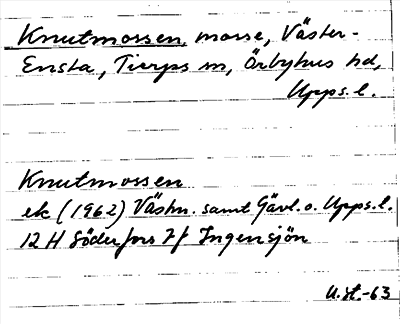 Knutmossen, mosse, Väster-
Ensta, Tierps sn, Örbyhus hd,
Upps. l.
Knutmossen
ek (1962) Västm. samt Gävl. o. Upps. l.
12 H Söderfors 7f Ingensjön
U.H.-63